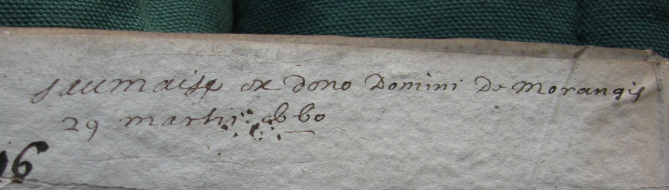 saumaise ex dono Domini De Morangis
29 martii 1660
16